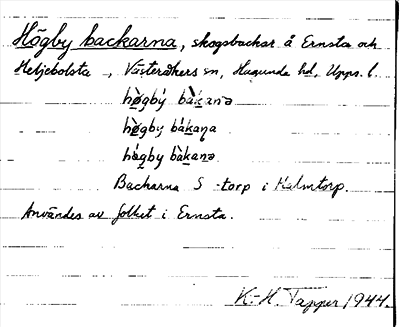 Högby backarna, skogsbackar å Ernsta och
Heljebolsta, Västeråkers sn, Hagunda hd, Upps. l.
hø̀gbý bàkanə
hø̀gbý bákaṇa
hø̀gbý bàkanə
Backarna S -torp i Kalmtorp.
Användes av folket i Ernsta.
K.-H. Tapper 1944.